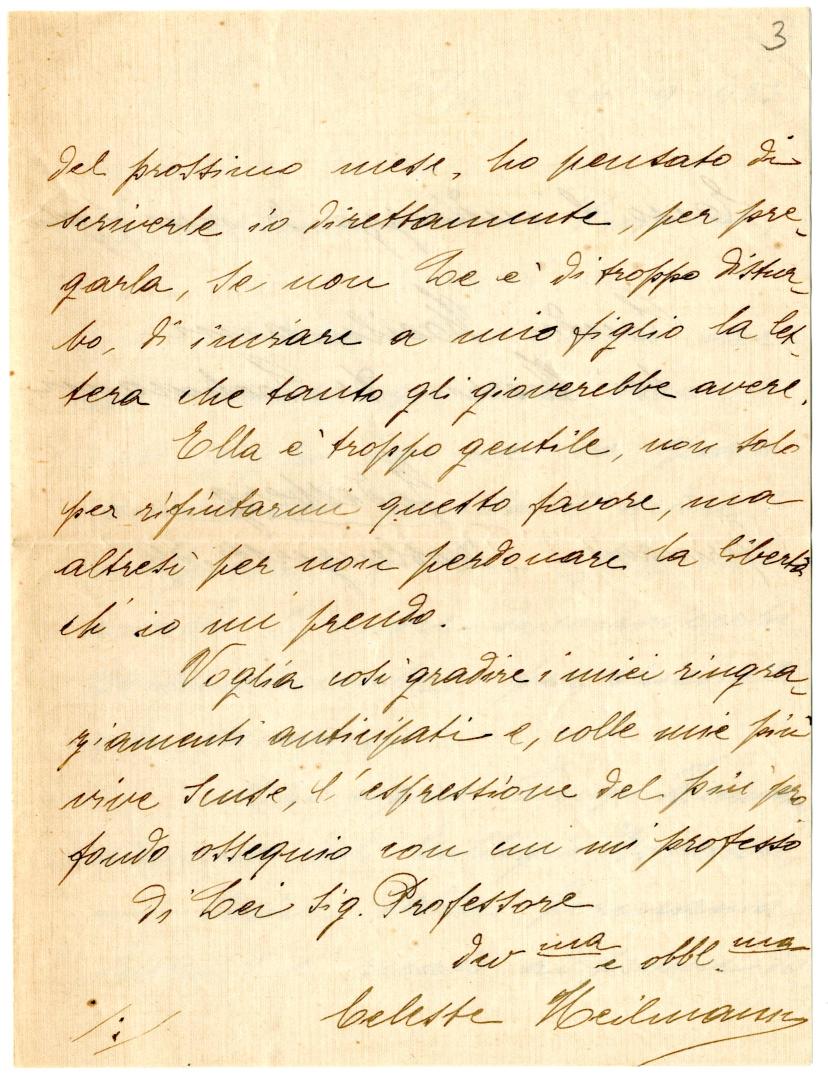 3
del prossimo mese, ho pensato di
scriverle io direttamente, per pre-
garla, se non Le è di troppo distur-
bo, di inviare a mio figlio la let-
tera che tanto gli gioverebbe avere.
Ella è troppo gentile, non solo
per rifiutarmi questo favore, ma
altresì per non perdonare la libertà
ch'io mi prendo.
Voglia così gradire i miei ringra-
ziamenti anticipati e, colle mie più
vive scuse, l'espressione del più pro
fondo ossequio con cui mi professo
di Lei Sig. Professore
dev ma e obbl. ma
Celeste Heilmann
/:/